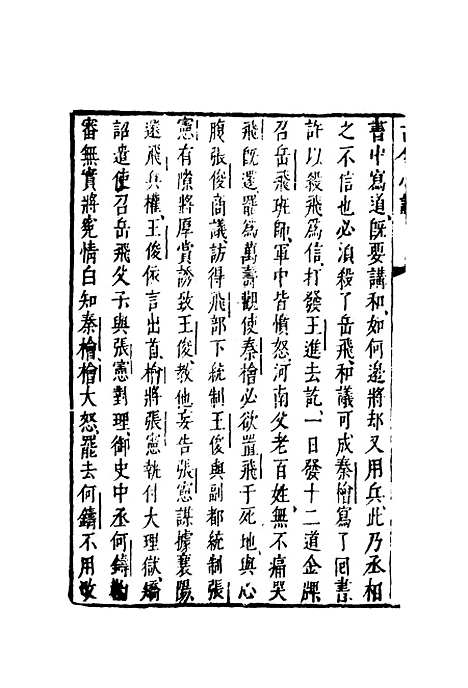 書中寫道既要講和如何邊將却又用兵此乃丞相
之不信也必湏殺了岳飛和議可成秦檜寫了囘書
許以殺飛爲信打發王進去訖一日發十二道金牌
召岳飛班師軍中皆憤怒河南父老百姓無不痛哭
飛旣還罷爲萬壽觀使秦檜必欲置飛于死地與心
腹張俊商議訪得飛部下統制王俊與副都統制張
憲有隙將厚賞誘致王俊教他妄告張憲謀據襄陽
還飛兵權王俊依言出首檜將張憲執付大理獄矯
詔遣使召岳飛父子與張憲對理御史中丞何鑄勘
審無實將寃情白知秦檜檜大怒罷去何鑄不用改